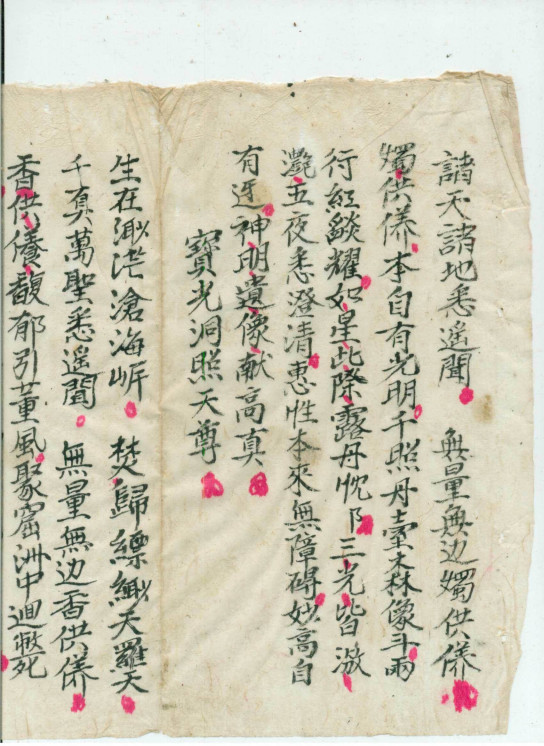 諸天諸地悉遥聞 無量無边燭供养
燭供养本自有光明千照丹臺森像斗兩
行紅燄耀如星此際露丹忱卩三光皆激
灧五夜悉澄清惠性本來無障碍妙高自
有迓神明遺像献高真
寶光洞照天尊
生在渺茫滄海岍 焚歸縹緲天羅天
千真萬聖悉遥聞 無量無边香供养
香供养馥郁引薰風聚窟洲中迴斃死